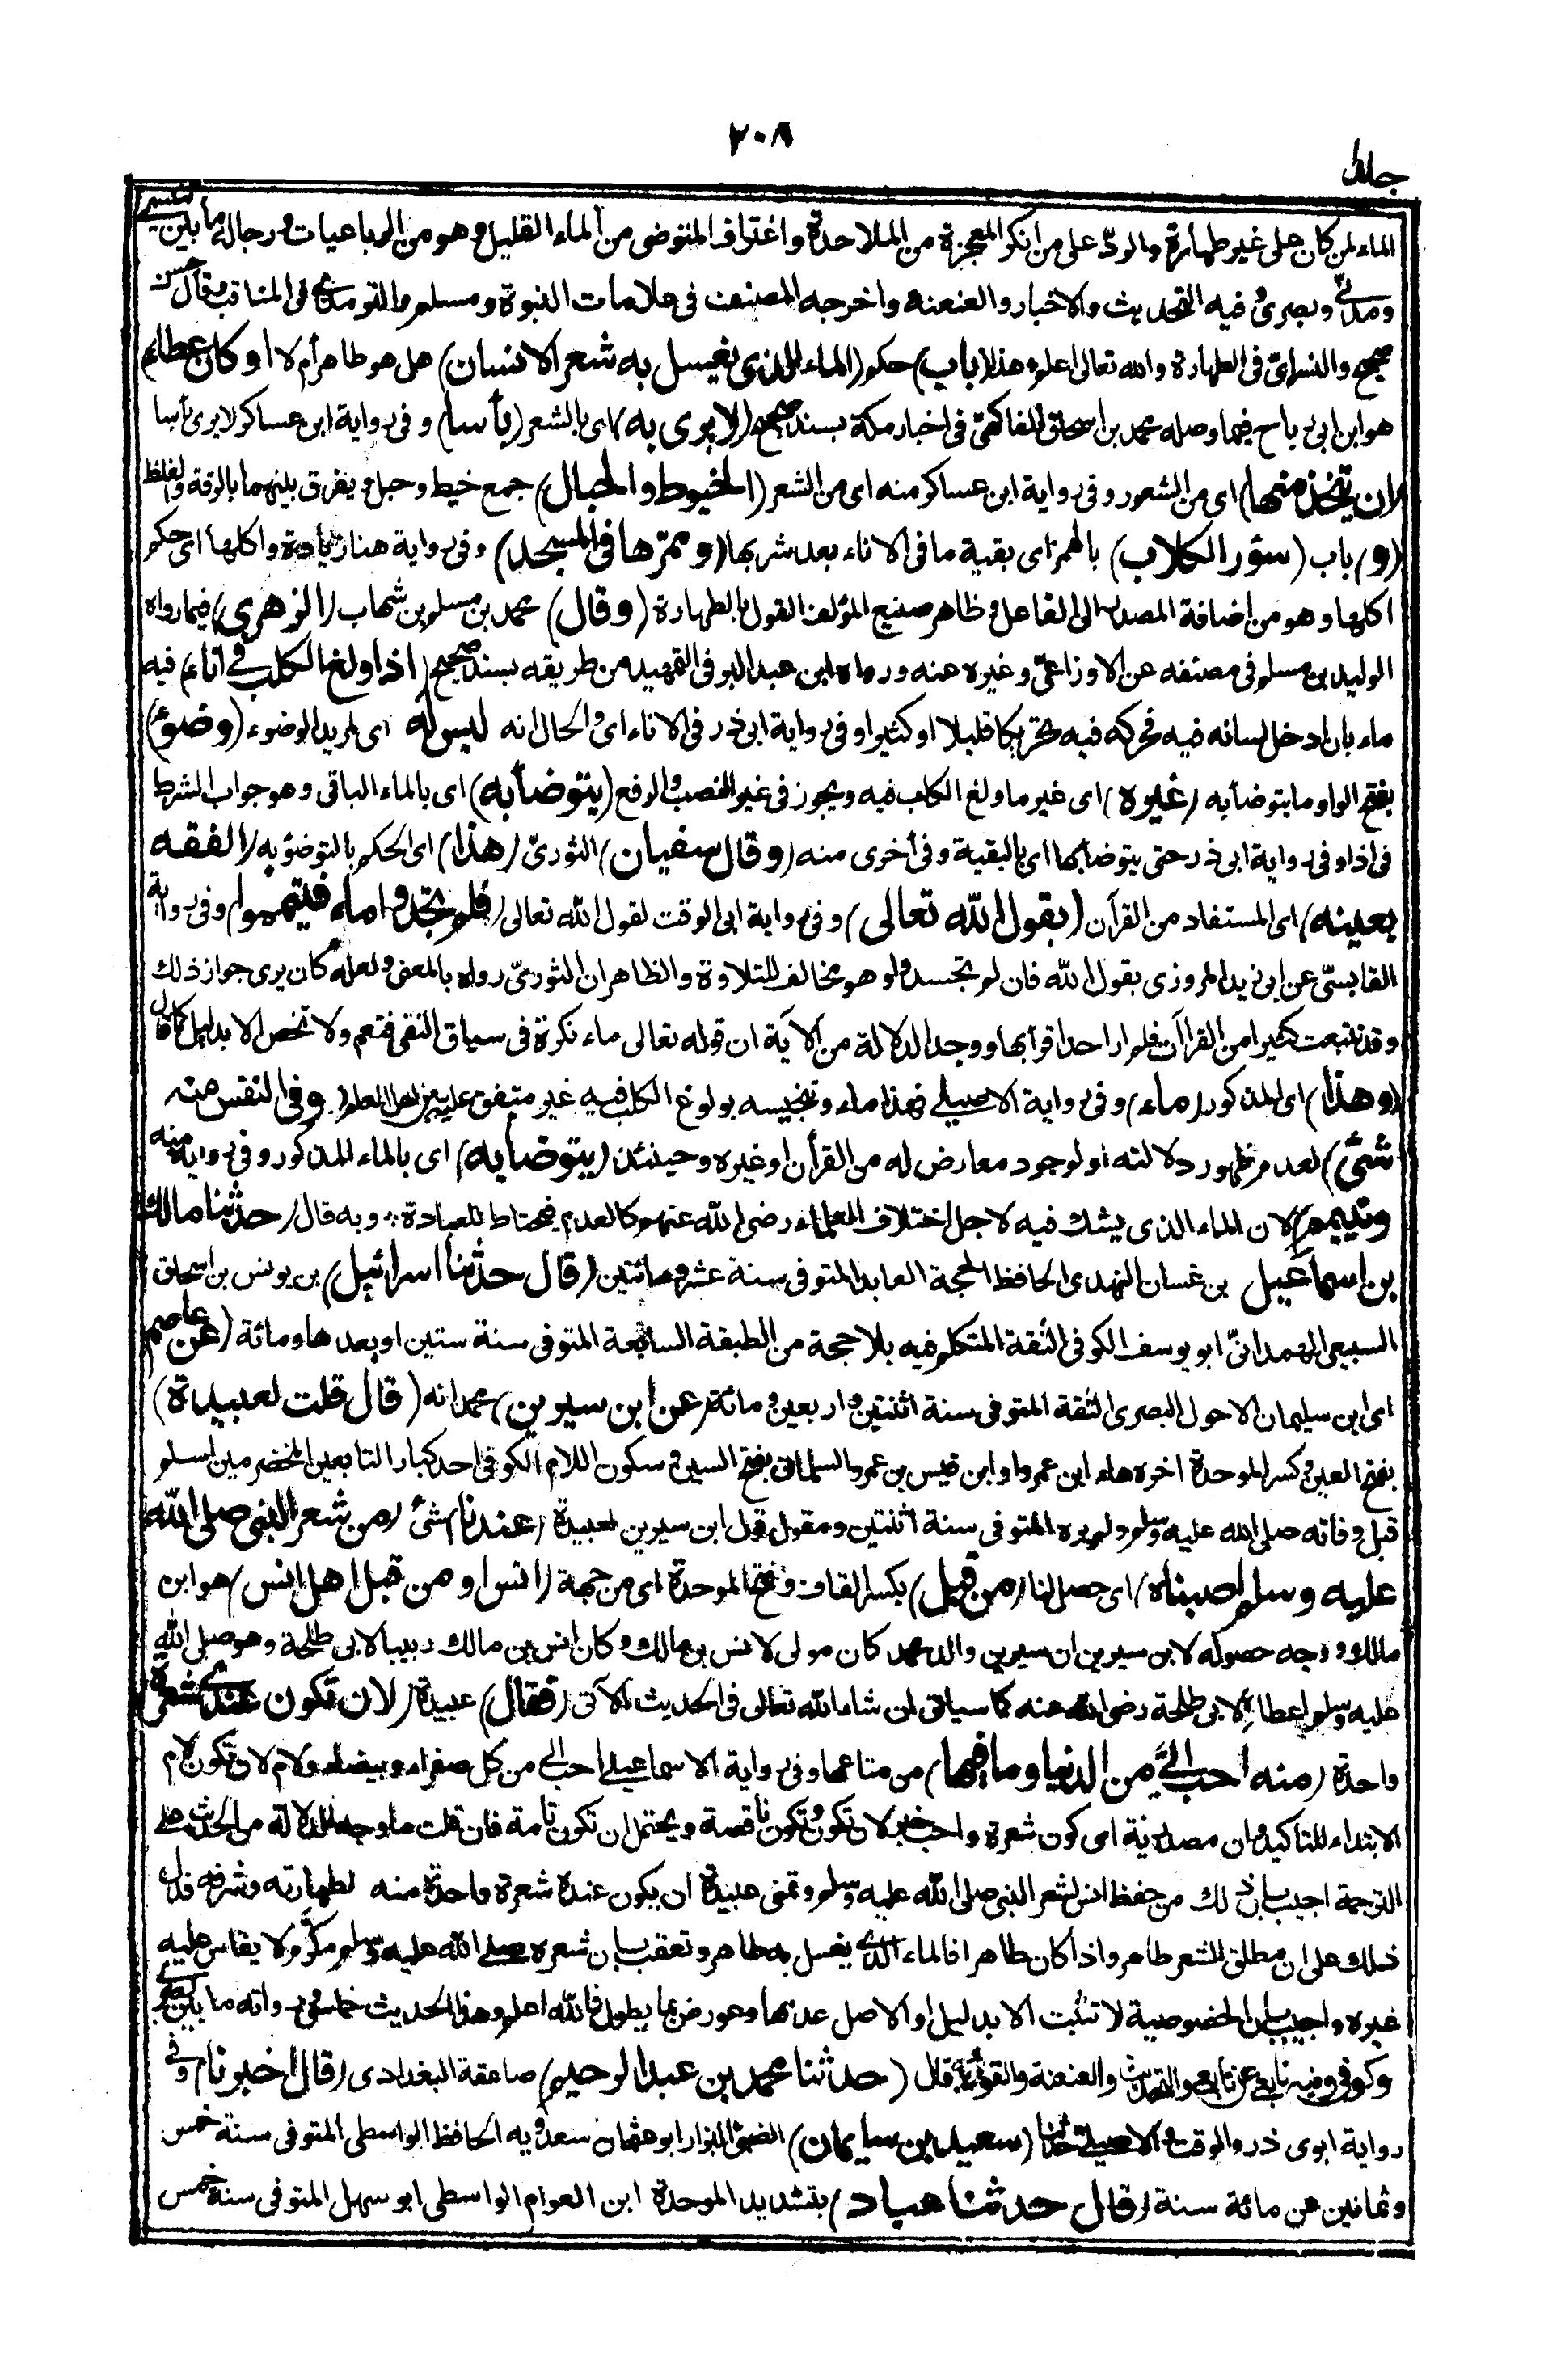 ٢٠٨
جلد
الماء لمن كان على غير طهارة والردّ على من انكر المعجزة من الملاحدة واغتراف المتوضى من الماء القليل وهو من الرباعيات ورجاله ما بين تنيسي
ومدنيّ وبصريّ وفيه التحديث والاخبار والعنعنة واخرجه المصنف فى علامات النبوة ومسلم والترمذي فى المناقب وقال حسن
صحيح والنسائىّ فى الطهارة والله تعالى اعلم هذا (باب) حكم (الماء الذى يغسل به شعر الانسان) هل هو طاهر أم لا (وكان عطاء)
هو ابن ابى رباح فيما وصله محمد بن اسحاق الفاكهىّ فى اخبار مكة بسند صحيح (لا يرى به) اى بالشعر (بأسا) وفى رواية ابن عساكر لا يرى بأسا
(ان يتخذ منها) اى من الشعور وفى رواية ابن عساكر منه اى من الشعر (الخيوط والحبال) جمع خيط وحبل ويفرق بينهما بالرقة والغلظ
(و) باب (سؤر الكلاب) بالهمز اى بقية ما فى الاناء بعد شربها (وممرّها فى المسجد) وفى رواية هنا زيادة واكلها اى حكم
اكلها وهو من اضافة المصدر الى الفاعل وظاهر صنيع المؤلف القول بالطهارة (وقال) محمد بن مسلم بن شهاب (الزهرى) فيما رواه
الوليد بن مسلم فى مصنفه عن الاوزاعىّ وغيره عنه ورواه ابن عبد البر فى التمهيد من طريقه بسند صحيح (اذا ولغ الكلب فى اناء) فيه
ماء بان ادخل لسانه فيه فحركه فيه تحريكا قليلا او كثيرا وفى رواية ابى ذر فى الاناء اى والحال انه ليس له اى لمريد الوضوء (وضوء)
بفتح الواو ما يتوضأ به (غيره) اى غير ما ولغ الكلب فيه ويجوز فى غير النصب والرفع (يتوضأ به) اى بالماء الباقى وهو جواب الشرط
فى اذا وفى رواية ابى ذر حتى يتوضأ بها اى بالبقية وفى أخرى منه (وقال سفيان) الثورىّ (هذا) اى الحكم بالتوضؤ به (الفقه
بعينه) اى المستفاد من القرآن (بقول الله تعالى) وفى رواية ابى الوقت لقول الله تعالى (فلم تجدوا ماء فتيمموا) وفى رواية
القابسىّ عن ابى زيد المروزى بقول الله فان لم تجدوا وهو مخالف للتلاوة والظاهر ان الثورىّ رواه بالمعنى ولعله كان يرى جواز ذلك
وقد تتبعت كثيرا من القراآت فلم ار احدا قرأ بها ووجه الدلالة من الآية ان قوله تعالى ماء نكرة فى سياق النفى فتعم ولا تخص الا بدليل كما قال
(وهذا) اى المذكور (ماء) وفى رواية الاصيلى فهذا ماء وتنجيسه بولوغ الكلب فيه غير متفق عليه بين اهل العلم (وفى النفس منه
شئ) لعدم ظهور دلالته او لوجود معارض له من القرأن او غيره وحينئذ (يتوضأ به) اى بالماء المذكور وفى رواية منه
(ويتيمم) لان الماء الذى يشك فيه لاجل اختلاف العلماء رضى الله عنهم كالعدم فيحتاط للعبادة وبه قال (حدثنا مالك
بن اسماعيل) بن غسان النهدى الحافظ الحجة العابد المتوفى سنة عشر ومائتين (قال حدثنا اسرائيل) بن يونس بن اسحاق
السبيعى الهمدانىّ ابو يوسف الكوفى الثقة المتكلم فيه بلا حجة من الطبقة السابعة المتوفى سنة ستين او بعدها ومائة (عن عاصم)
اى ابن سليمان الاحول البصرى الثقة المتوفى سنة اثنتين واربعين ومائة (عن ابن سيرين) محمد انه (قال قلت لعبيدة)
بفتح العين وكسر الموحدة اخره هاء ابن عمرو او ابن قيس بن عمرو السلمانى بفتح السين وسكون اللام الكوفى احد كبار التابعين المخضرمين اسلم
قبل وفاته صلى الله عليه وسلم ولم يره المتوفى سنة اثنتين ومقول قول ابن سيرين لعبيدة (عندنا) شئ (من شعر النبى صلى الله
عليه وسلم اصبناه) اى حصل لنا (من قبل) بكسر القاف وفتح الموحدة اى من جهة (انس او من قبل اهل انس) هو ابن
مالك ووجه حصوله لابن سيرين ان سيرين والد محمد كان مولى لانس بن مالك وكان انس بن مالك ربيبا لابى طلحة وهو صلى الله
عليه وسلم اعطاه لابى طلحة رضى الله عنه كما سياتى ان شاء الله تعالى فى الحديث الآتى (فقال) عبيدة (لان تكون عندى شعرة)
واحدة (منه احب الىّ من الدنيا وما فيها) من متاعها وفى رواية الاسماعيلى احب الى من كل صفراء وبيضاء ولام لان تكون لام
الابتداء للتاكيد وان مصدرية اى كون شعرة واحب خبر لان تكون وتكون ناقصة ويحتمل ان تكون تامة فان قلت ما وجه الدلالة من الحديث على
الترجمة اجيب بان ذلك من حفظ انس لشعر النبى صلى الله عليه وسلم وتمنى عبيدة ان يكون عنده شعرة واحدة منه لطهارته وشرفه فدل
ذلك على ان مطلق الشعر طاهر واذا كان طاهرا فالماء الذى يغسل به طاهر وتعقب بان شعره صلى الله عليه وسلم مكرّم لا يقاس عليه
غيره واجيب بان الخصوصية لا تثبت الا بدليل والاصل عدمها وعورض بما يطول فالله اعلم وهذا الحديث خماسى ورواته ما بين بصرى
وكوفى وفيه تابعى عن تابعى والتحديث والعنعنة والقول وبه قال (حدثنا محمد بن عبد الرحيم) صاعقة البغدادى (قال اخبرنا) وفى
رواية ابوى ذر والوقت والاصيلى حدثنا (سعيد بن سليمان) الضبىّ البزار ابو عثمان سعدويه الحافظ الواسطى المتوفى سنة خمس
وثمانين عن مائة سنة (قال حدثنا عباد) بتشديد الموحدة ابن العوام الواسطى ابو سهل المتوفى سنة خمس